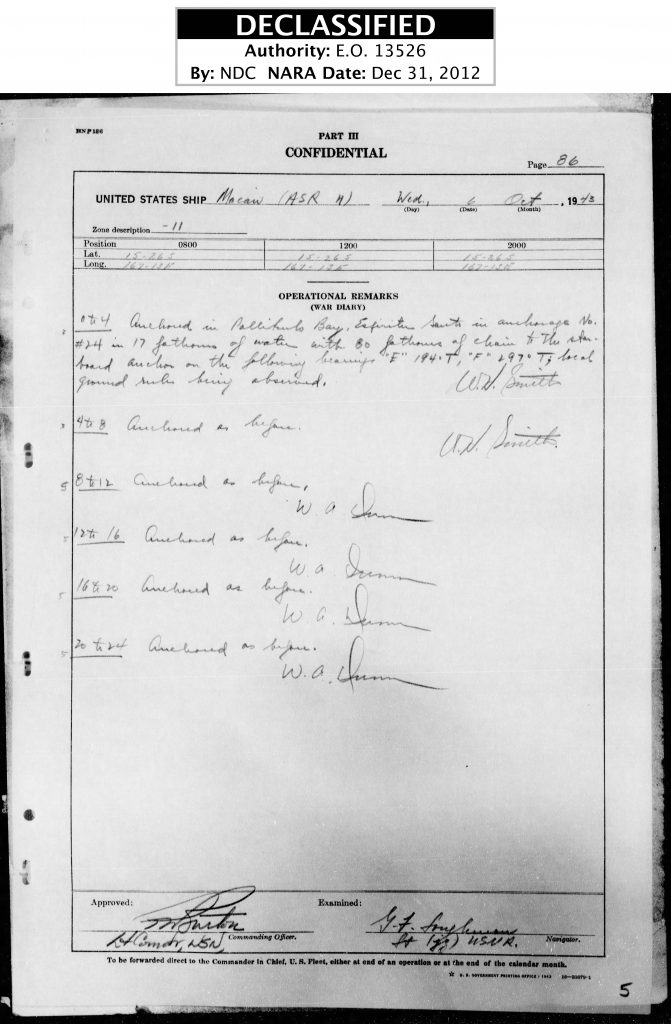 DECLASSIFIED
Authority: E.O. 13526
By: NDC NARA Date: Dec 31, 2012
PART III
CONFIDENTIAL
Page 86
UNITED STATES SHIP Macaw (ASR 11) Wed, 6 Oct, 1943
(Day) (Date) (Month)
Zone description -11
Position 0800 1200 2000
Lat. 15-26 S 15-26 S 15-26 S
Long.
OPERATIONAL REMARKS
(WAR DIARY)
0 to 4 Anchored in Pallikulo Bay, Espiritu Santo in anchorage No.
#24 in 17 fathoms of water with 80 fathoms of chain to the star-
board anchor on the following bearings "E" 194°T, "F" 297°T; local
ground rules being observed.
W.N. Smith
4 to 8 Anchored as before.
W.N. Smith
8 to 12 Anchored as before.
W. A. Dunn
12 to 16 Anchored as before.
W. A. Dunn
16 to 20 Anchored as before.
W. A. Dunn
20 to 24 Anchored as before.
W. A. Dunn
Approved: Examined:
Burton G. F.
Lt Comdr, USN, Commanding Officer. Lt (jg) USNR. Navigator.
To be forwarded direct to the Commander in Chief, U. S. Fleet, either at end of an operation or at the end of the calendar month.
U. S. GOVERNMENT PRINTING OFFICE
5